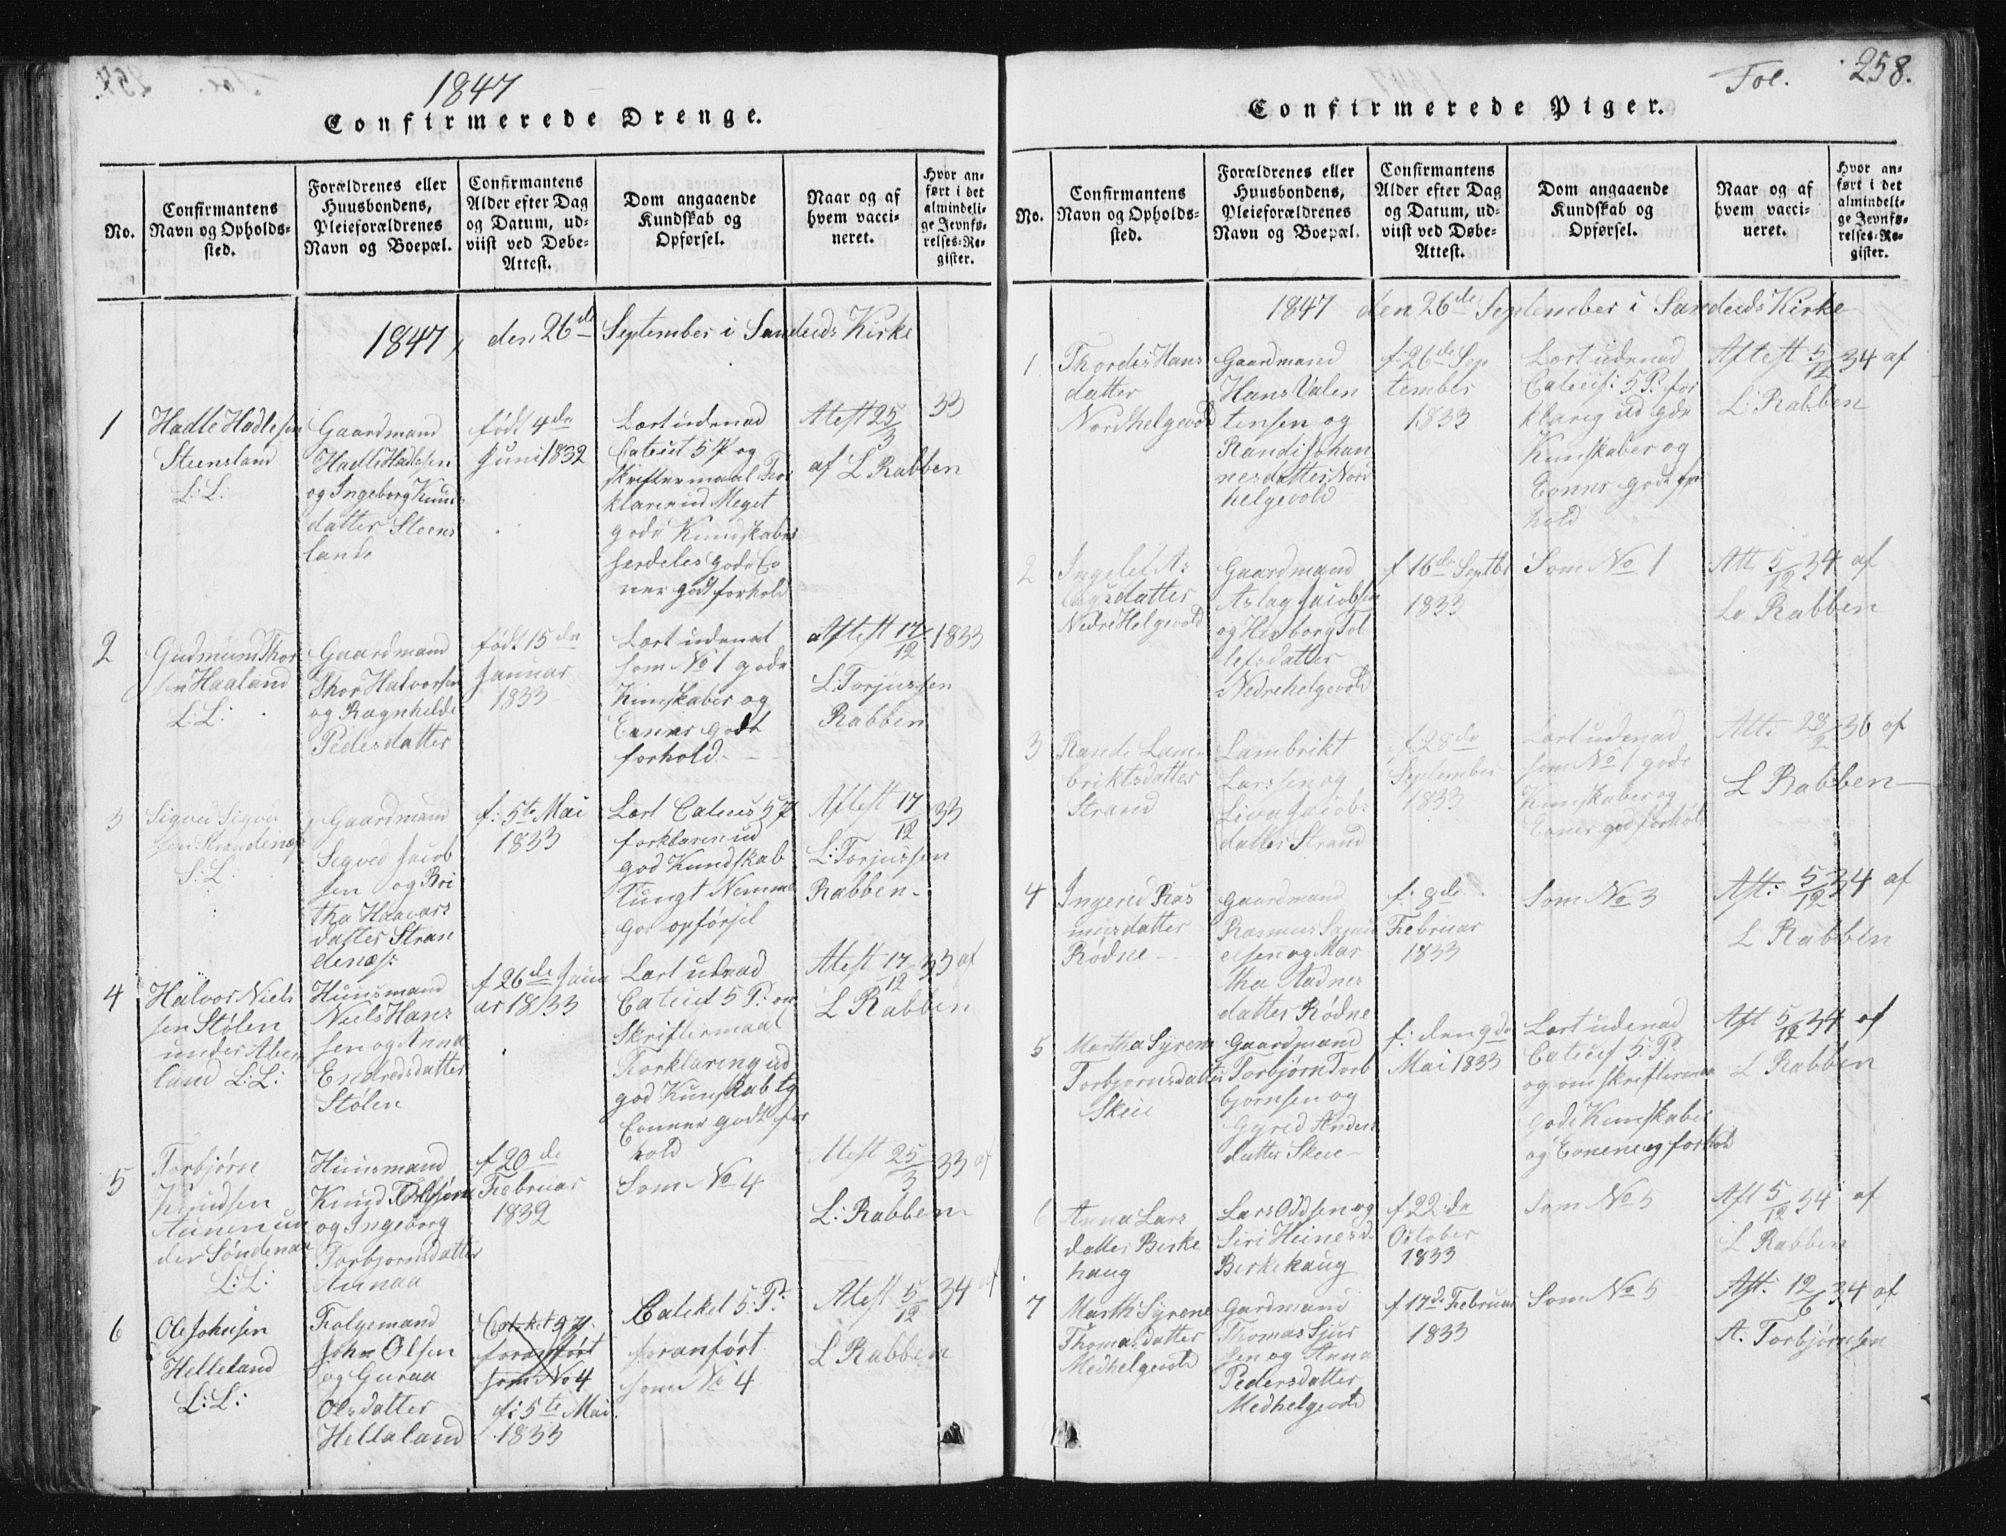 1847
Confirmerede Drenge.
No.
Confirmantens
Navn og Opholds-
sted.
Forældrenes eller
Huusbondens,
Pleieforældrenes
Navn og Boepæl.
Confirmantens
Alder efter Dag
og Datum, ud-
viist ved Døbe-
Attest.
Dom angaaende
Kundskab og
Opførsel.
Naar og af
hvem vacci-
neret.
Hvor an-
ført i det
almindeli-
ge Jevnfø-
relses-Re-
gister.
1847, den 26de September i Sandeids Kirke
1
Hadle Hadlesen
Steensland
L: L:
Gaardmand
Hadle Hadlesen
og Ingeborg Knuds
datter Steens
lande
født 4de
Juni 1832
Lært udenad
5 P og
skriftermaal For
klaren ud Meget
gode Kundskaber
færdeles gode Ev
ner godt forhold
Atest 25/3 33
af L Rabben
2
Gudmund Thor
sen Haaland
L: L:
Gaardmand
Thor Halvorsen
og Ragnhilde
Pedersdatter
født 15de
Januar
1833
Lært udenat
som No 1 gode
Kunskaber og
Evner godt
forhold
Attest 17/12 1833
L: Torjussen
Rabben
3
Sigved Sigve
sen Strandenæs
S: L:
Gaardmand
Segved Jacob
sen og Bri
tha Haavars
datter Stran
denæs
f: 5te Mai
1833
Lært Catecis 5 P
forklaren ud
god Kundskab
Tungt Nemme
god opførsel
Attest 17/12 33
L: Torjussen
Rabben
4
Halvor Niels
sen Stølen
under Aben
land L: L:
Huusmand
Niels Hans
sen og Anna
Endredsdatter
Stølen
f 26de Janu
ar 1833
Lært udnad
5 P: og
Skriftermaal
Forklaring ud
god Kunskab og
Evner godt for
hold
Atest 17/12 33 af
L Rabben
5
Torbjørn
Knudsen
un
der Søndenaa
L: L:
Huusmand
Knud
og Ingeborg
Torbjørnsdatter
f 20de
Februar
1832
Som No 4
Atest 25/3 33 af
L: Rabben
6
Ole Johnsen
Helleland
L: L:
Folgemand
John Olsen
og Guraa
Olsdatter
Hellaland
foranført
som No 4
f: 5te Mai
1833
Catekel 5: P:
foranført
som No 4
Atest 5/12 34 af
L Rabben
Fol. 258.
Confirmerede Piger.
No.
Confirmantens
Navn og Opholds-
sted.
Forældrenes eller
Huusbondens,
Pleieforældrenes
Navn og Boepæl.
Confirmantens
Alder efter Dag
og Datum, ud-
viist ved Døbe-
Attest.
Dom angaaende
Kundskab og
Opførsel.
Naar og af
hvem vacci-
neret.
Hvor an-
ført i det
almindeli-
ge Jevnfø-
relses-Re-
gister.
1847 den 26de September i Sandeids Kirke
1
Thordis Hans
datter
Nordhelgevold
Gaardmand
Hans Valen
tensen og
Randi Johan
nesdatter Nord
helgevold
f: 26de Sep
tember
1833
Lært udenad
5 P: for
klareg ud gode
Kunskaber og
Evner godt for
hold
Attest 5/12 34 af
L: Rabben
2
Ingelef As
lagsdatter
Nedre Helgevold
Gaardmand
Aslag Jacobsen
og Herborg Tol
lefsdatter
Nedrehelgevold
f 16de Septbr
1833
Som No 1
Att 5/12 34 af
L Rabben
3
Rande Lam
briktsdatter
Strand
Lambrikt
Larssen og
Liva Jacobs
datter Strand
f. 28de
September
1833
Lært udenad
som No 1 gode
Kunskaber og
Evner god forhold
Att: 28/2 36 af
L Rabben
4
Ingerid Ras
musdatter
Rødne
Gaardmand
Rasmus Samu
elsen og Mar
tha Aadnes
datter Rødne
f: 8de
Februar
1833
Som No 3
Aft: 5/12 34 af
L Rabben
5
Martha Syrene
Torbjørnsdatter
Skeie
Gaardmand
Torbjørn Torb
bjørnsen og
Gyrid Anders
datter Skeie
f: den 9de
Mai 1833
Lært udenad
5. P:
og om skriftermaa
gode Kunskaber
og Evnene og forhold
Aft 5/12 34 af
L Rabben
6
Anna Lars
datter Birke
haug
Lars Oddsen og
Siri
Birkehaug
f 22de
October
1833
Som No 5
Aft 5/12 34 af
L Rabben
7
Marth Syrene
Thomasdatter
Medhelgevold
Gardmand
Thomas Sjur
sen og Anna
Pedersdatter
Medhelgevold
f 17de Februar
1833
Som No 5
Aft: 12/6 34 af
A. Torbjørnsen